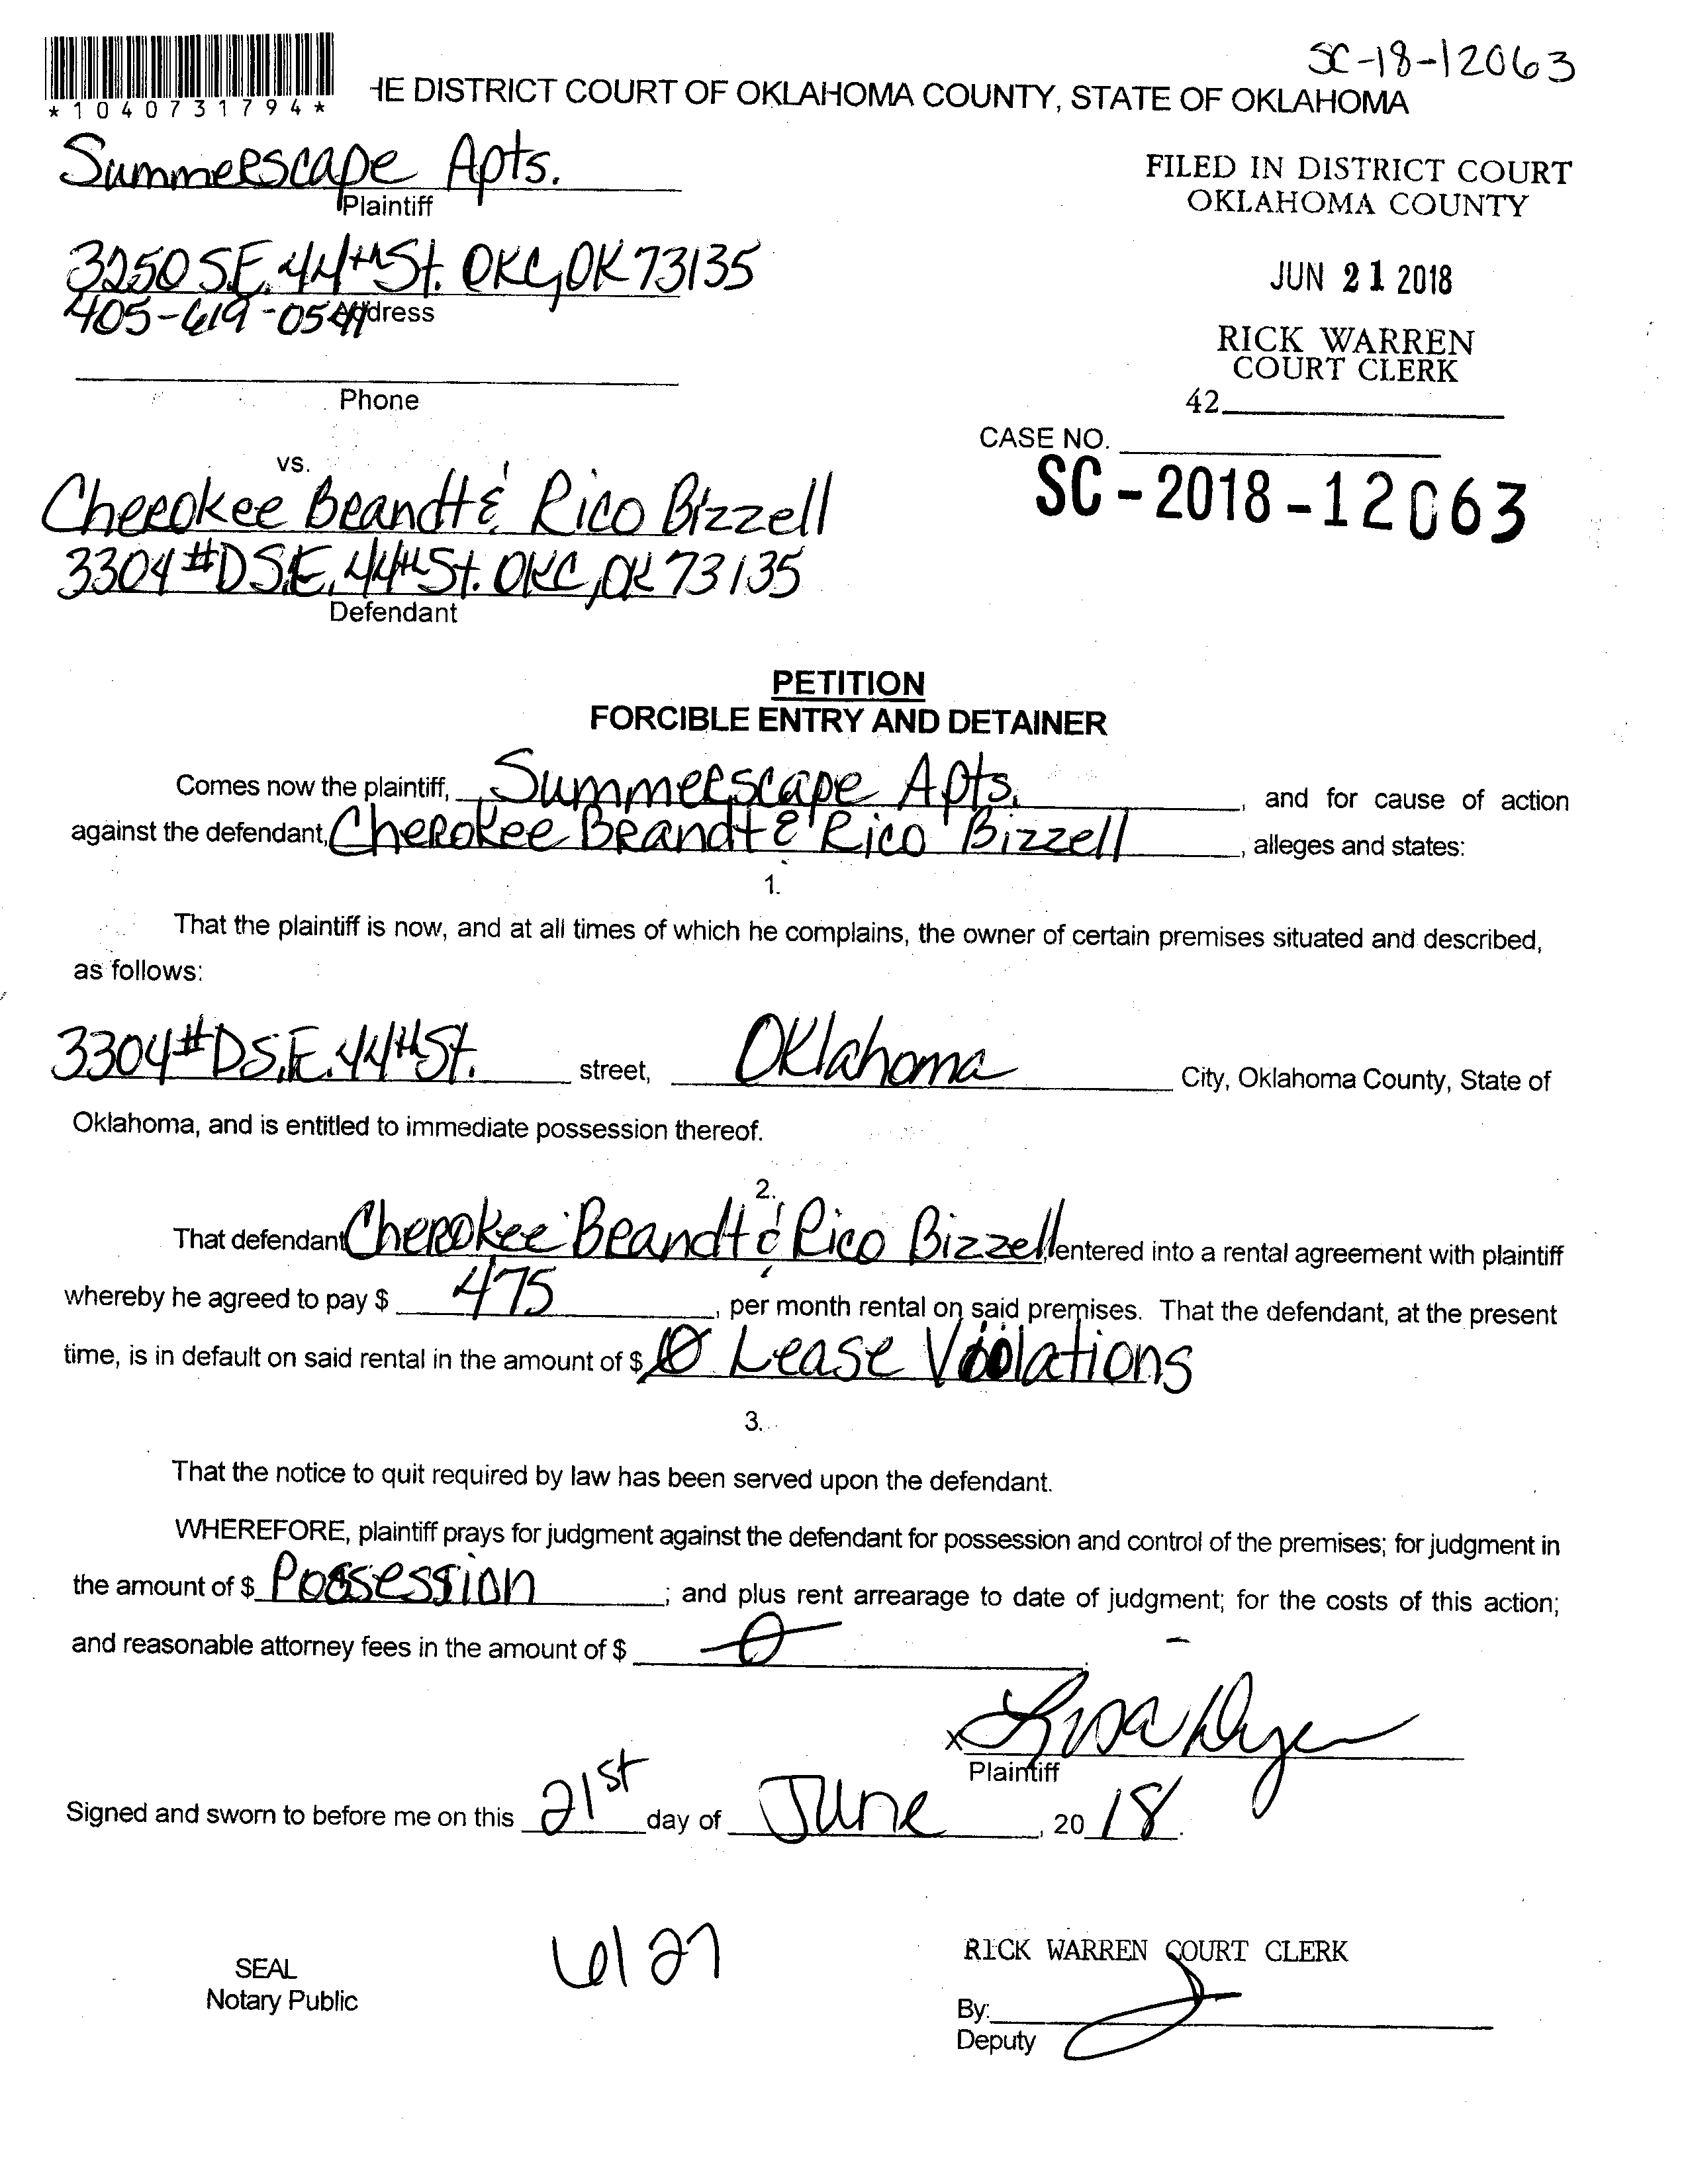 SC-18-12063
*1040731794*
HE DISTRICT COURT OF OKLAHOMA COUNTY, STATE OF OKLAHOMA
Summerscape Apts.
Plaintiff
FILED IN DISTRICT COURT
OKLAHOMA COUNTY
3250 S.E. 44th St. OKC, OK 73135
JUN 21 2018
405-619-0541
Address
RICK WARREN
COURT CLERK
Phone
42
CASE NO.
SC-2018-12063
vs.
Cherokee Brandt & Rico Bizzell
3304 #D S.E. 44th St. OKC, OK 73135
Defendant
PETITION
FORCIBLE ENTRY AND DETAINER
Comes now the plaintiff, Summerscape Apts., and for cause of action
against the defendant, Cherokee Brandt & Rico Bizzell, alleges and states:
1.
That the plaintiff is now, and at all times of which he complains, the owner of certain premises situated and described,
as follows:
3304 #D S.E. 44th St. street, Oklahoma City, Oklahoma County, State of
Oklahoma, and is entitled to immediate possession thereof.
2.
That defendant Cherokee Brandt & Rico Bizzell, entered into a rental agreement with plaintiff
whereby he agreed to pay $ 475, per month rental on said premises. That the defendant, at the present
time, is in default on said rental in the amount of $ 0 Lease Violations
3.
That the notice to quit required by law has been served upon the defendant.
WHEREFORE, plaintiff prays for judgment against the defendant for possession and control of the premises; for judgment in
the amount of $ Possession; and plus rent arrearage to date of judgment; for the costs of this action;
and reasonable attorney fees in the amount of $ 0.
X Lisa Dyer
Plaintiff
Signed and sworn to before me on this 21st day of June, 2018.
SEAL
Notary Public
6/27
RICK WARREN COURT CLERK
By:
Deputy